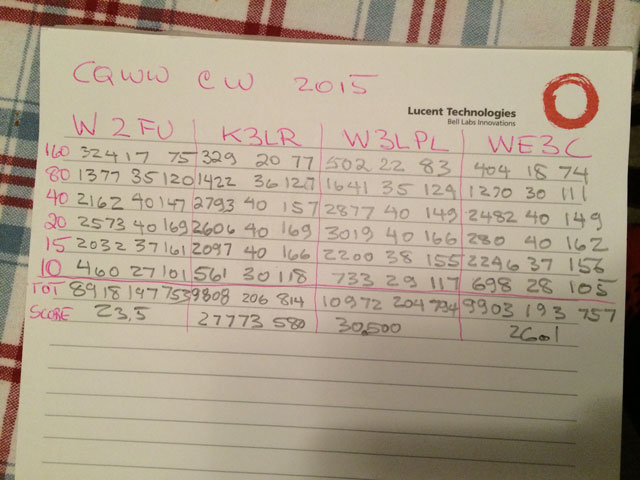 CQWW CW 2015
Lucent Technologies
Bell Labs Innovations
W2FU K3LR W3LPL WE3C
160 324 17 75 329 20 77 502 22 83 404 18 74
80 1377 35 120 1422 36 127 1641 35 129 1270 30 111
40 2162 40 147 2793 40 157 2877 40 149 2482 40 149
20 2573 40 169 2606 40 169 3019 40 166 280 40 162
15 2032 37 161 2097 40 166 2200 38 155 2246 37 156
10 460 27 101 561 30 118 733 29 117 698 28 105
TOT 8918 197 753 9808 206 814 10972 204 794 9903 193 757
SCORE 23,5 27773 580 30,500 26001